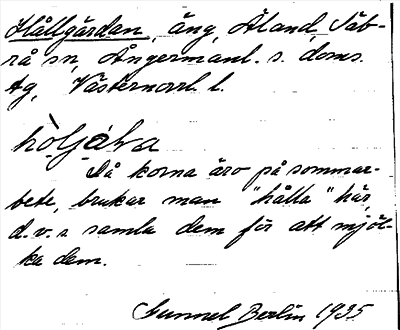 Hållgärdan, äng, Åland, Säb-
rå sn, Ångermanl. s. doms.
ag, Västernorrl. l.
hòlʝáɽa
Då korna äro på sommar-
bete, brukar man "hålla" här,
d.v.s samla dem för att mjöl-
ka dem.
Gunnel Berlin 1935